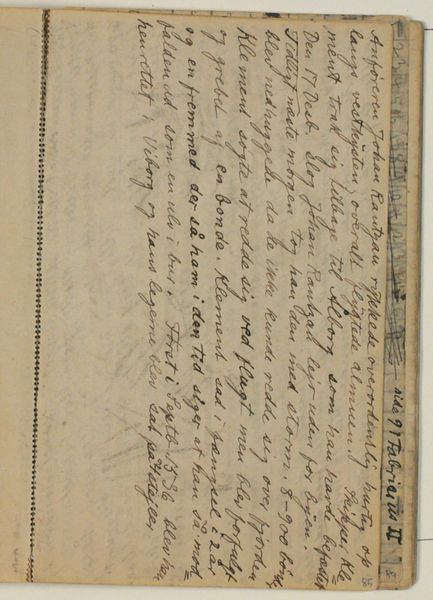 side 91 Fabricius II
Anføreren Johan Rantzau rykkede overordentlig hurtig op
langs vestkysten overalt flygtede almuen. Skipper Kle=
ment trak sig tilbage til Ålborg som han havde befæstet
Den 17 Decb. slog Johan Rantzau lejr uden for byen.
Tidligt næste morgen tog han den med storm. 8-900 bønder
blev nedhuggede da de ikke kunde redde sig over fjorden
Klement søgte at redde sig ved flugt men blev forfulgt
og grebet af en bonde. Klement sad i fængsel i 2 år
og en fremmed der så ham i den tid siger at han så mod=
falden ud som en ulv i bur. Først i Septb 1536 blev han
henrettet i Viborg og hans legeme blev sat på 4 stejler